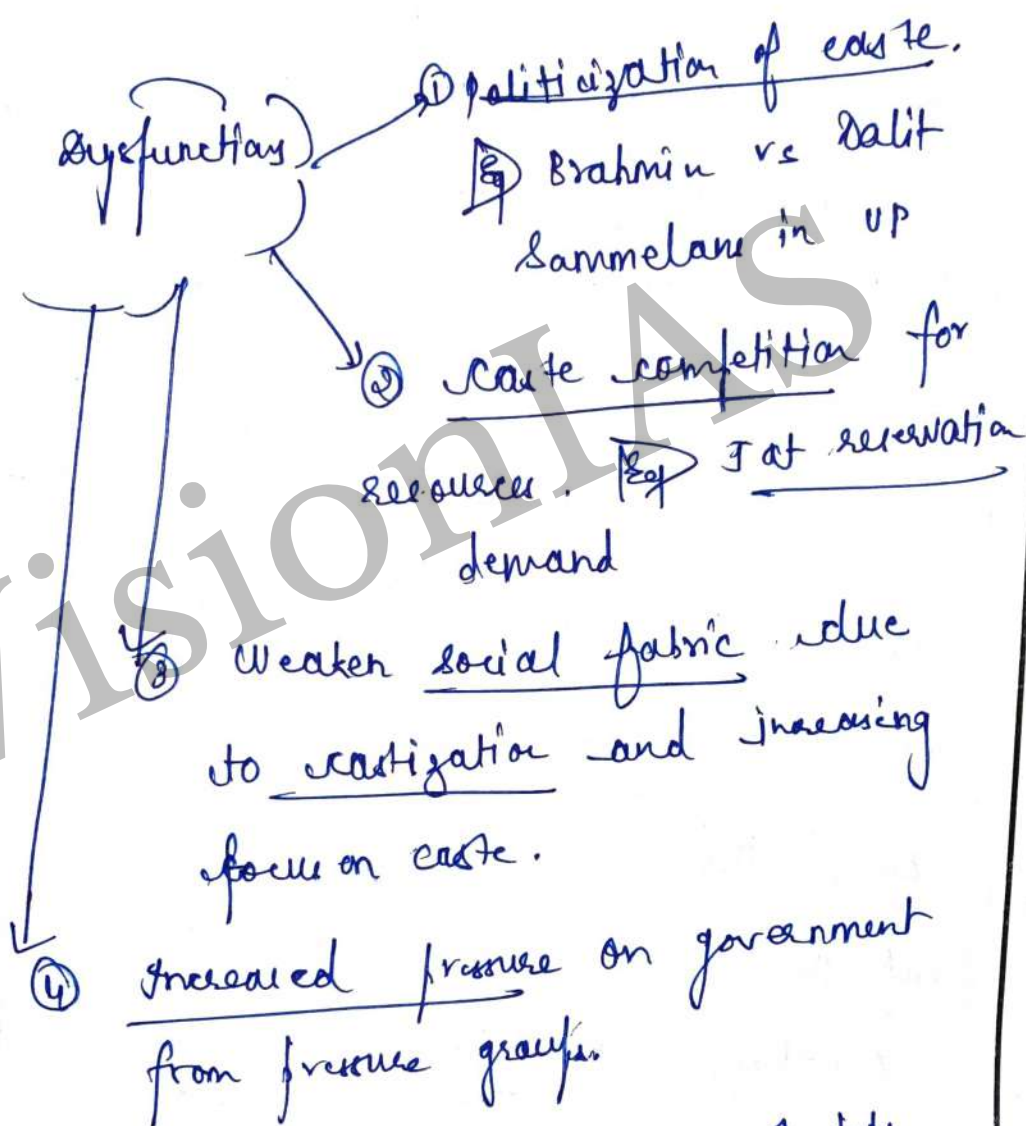 Dysfunctions
① Politicization of caste.
Eg Brahmin vs Dalit
Sammelans in UP
② caste competition for
resources. Eg Jat reservation
demand
③ Weaken social fabric due
to castization and increasing
focus on caste.
④ Increased pressure on government
from pressure groups.
VisionIAS